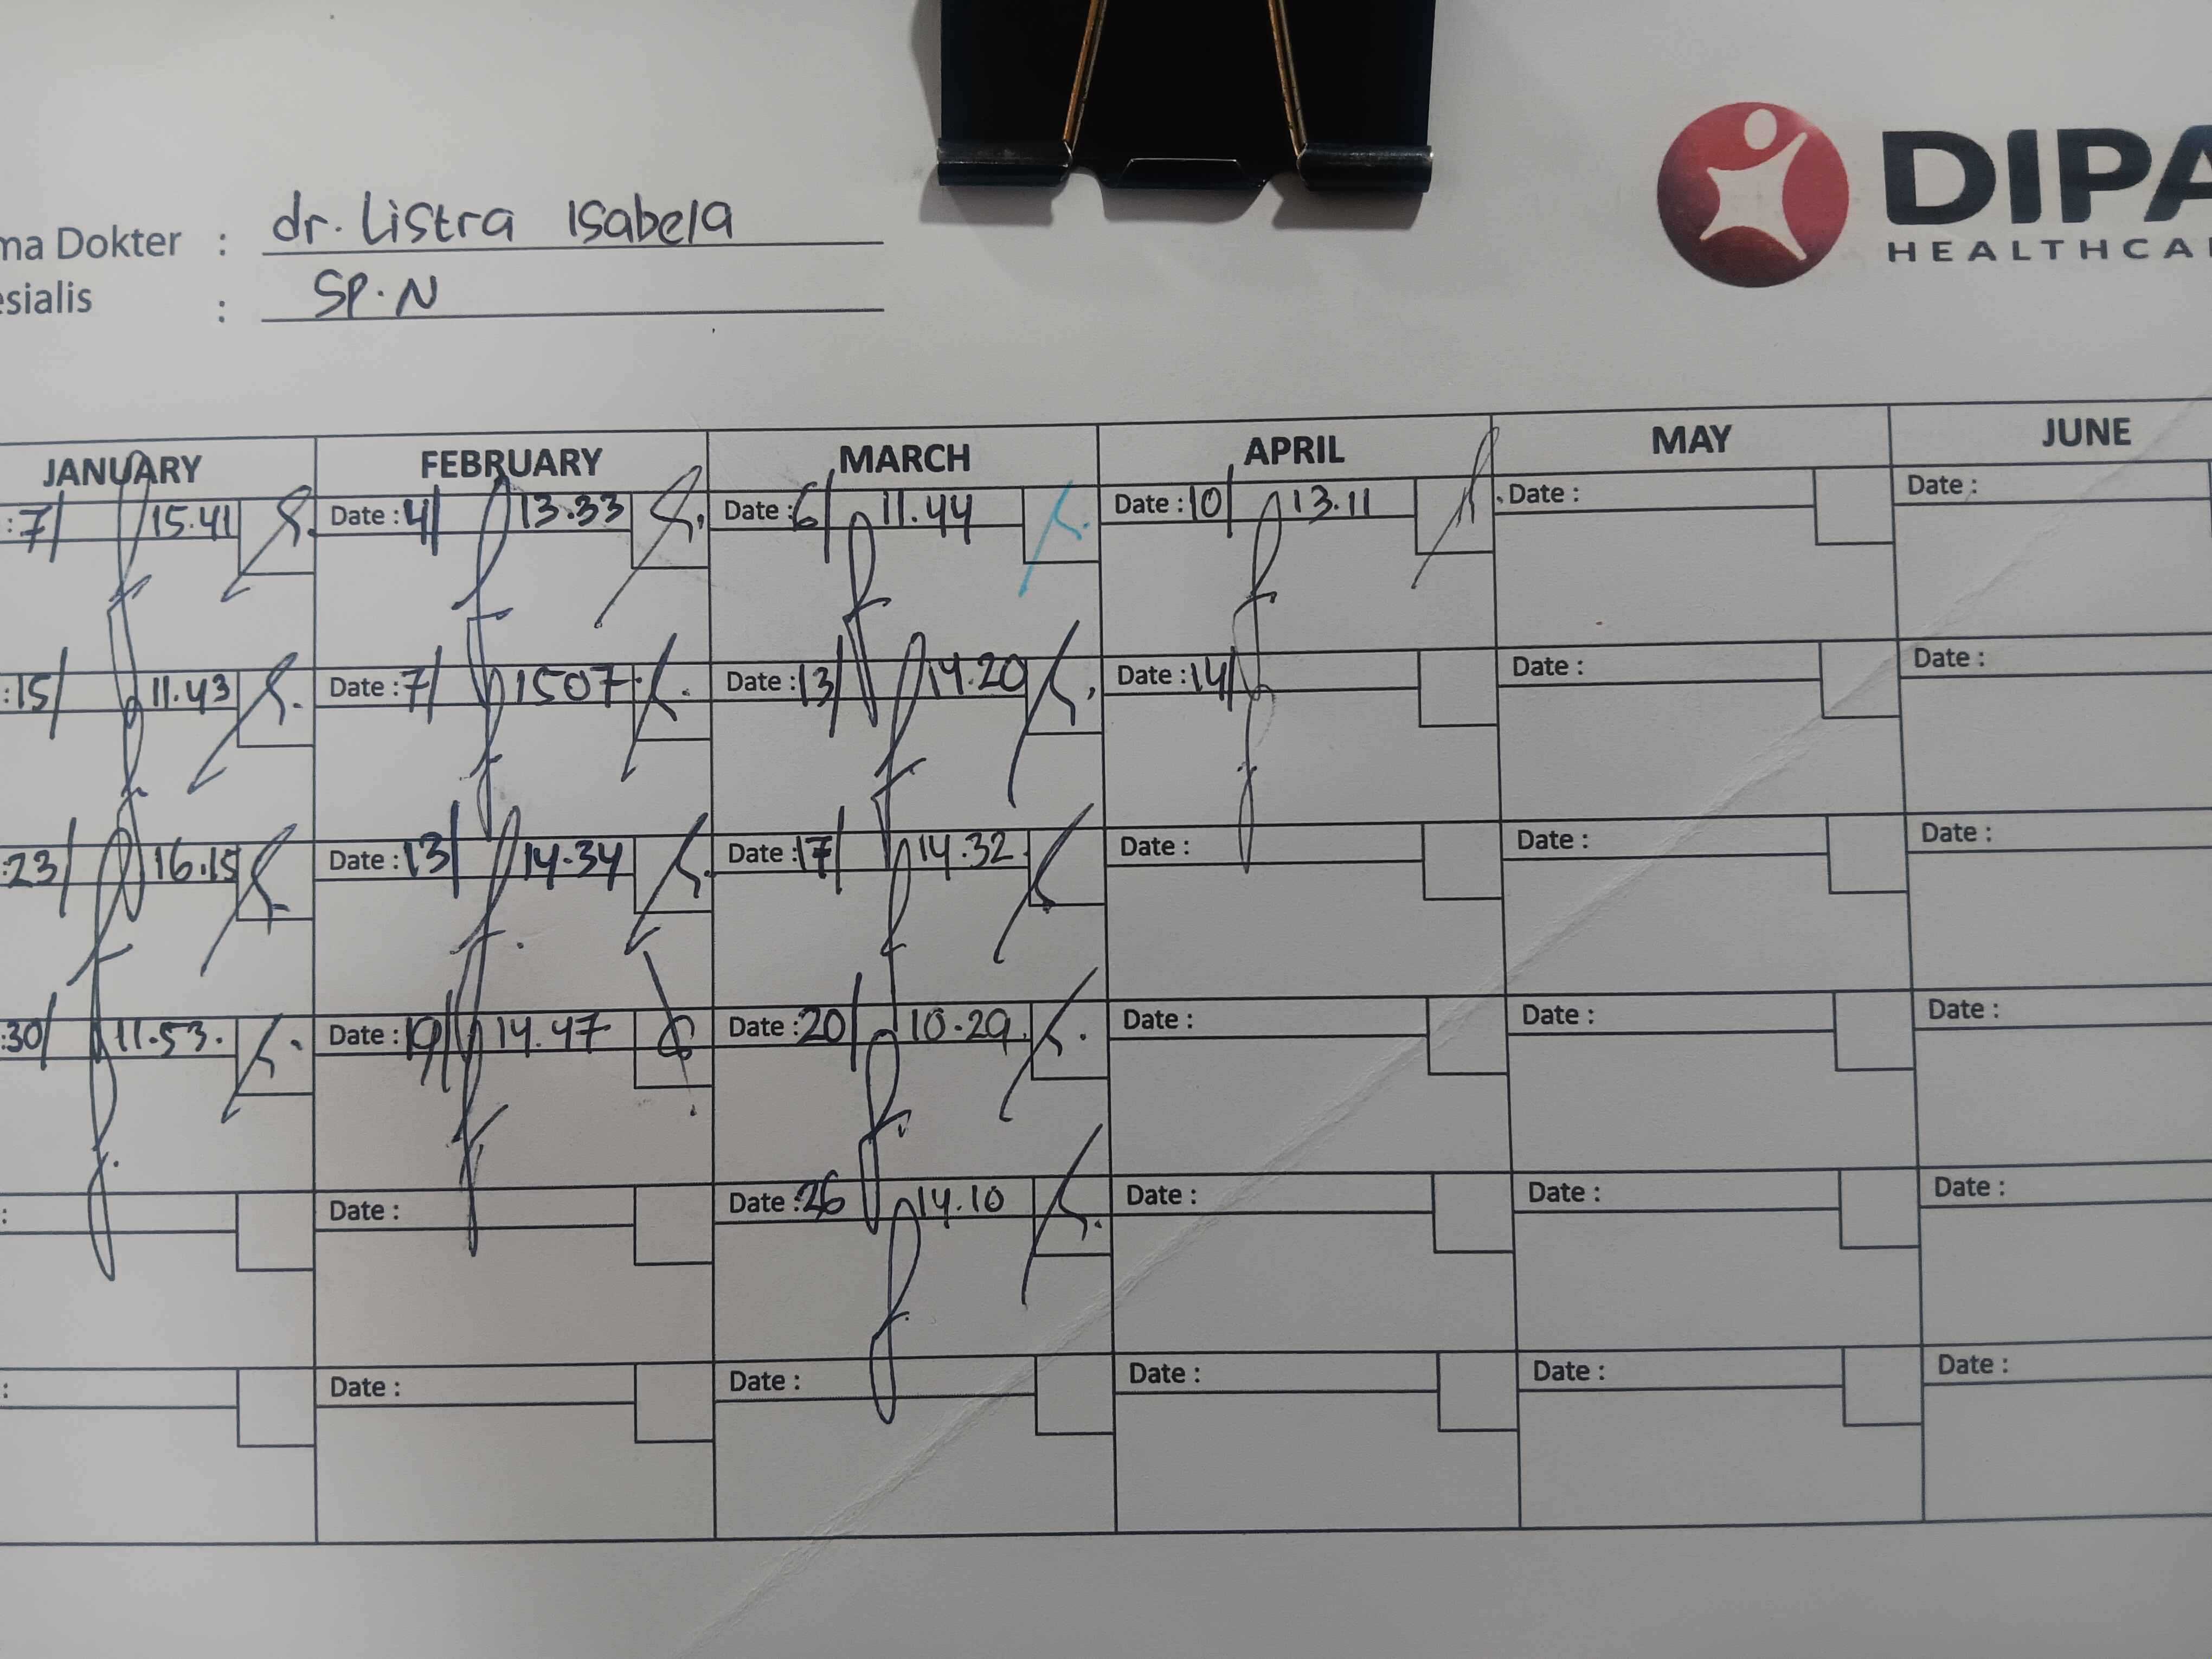 DIPA
HEALTHCA
ma Dokter : dr. Listra Isabela
esialis : SP.N
JANUARY FEBRUARY MARCH APRIL MAY JUNE
: 7/ 15.41 Date : 4/ 13.33 Date : 6/ 11.44 Date : 10/ 13.11 Date : Date :
: 15/ 11.43 Date : 7/ 1507 Date : 13/ 14.20 Date : 14/ Date : Date :
: 23/ 16.15 Date : 13/ 14.34 Date : 17/ 14.32 Date : Date : Date :
: 30/ 11.53. Date : 19/ 14.47 Date : 20/ 10.29. Date : Date : Date :
: Date : Date : 26 14.10 Date : Date : Date :
: Date : Date : Date : Date : Date :